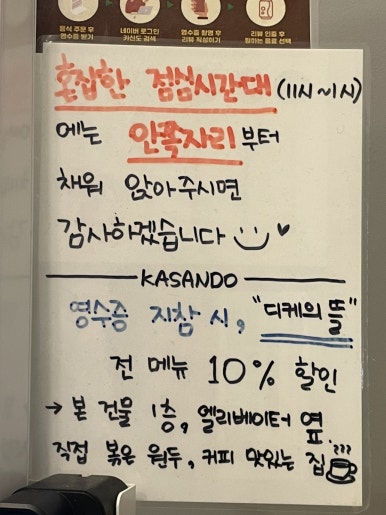 음식 주문 후 영수증 받기
네이버 로그인 카산도 검색
영수증 촬영 후 리뷰 작성하기
리뷰 인증 후 원하는 음료 선택
혼잡한 점심시간대 (11시~1시)
에는 안쪽자리부터
채워 앉아주시면
감사하겠습니다
KASANDO
영수증 지참 시, "디케의 뜰"
전 메뉴 10% 할인
→ 본 건물 1층, 엘리베이터 옆.
직접 볶은 원두, 커피 맛있는 집